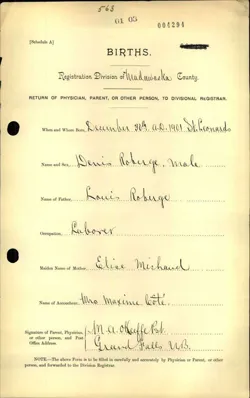 568
01 05 004294
[Schedule A]
BIRTHS.
Registration Division of Madawaska County.
RETURN OF PHYSICIAN, PARENT, OR OTHER PERSON, TO DIVISIONAL REGISTRAR.
When and Where Born, December 30th A.D. 1901 St. Leonards
Name and Sex, Denis Roberge, Male
Name of Father, Louis Roberge
Occupation, Laborer
Maiden Name of Mother, Elize Michaud
Name of Accoucheur, Mrs Maxime Coté
Signature of Parent, Physician, or other person, and Post Office Address. M. A. O'Keeffe Pst.
Grand Falls N.B.
NOTE.—The above Form is to be filled in carefully and accurately by Physician or other person, and forwarded to the Division Registrar.